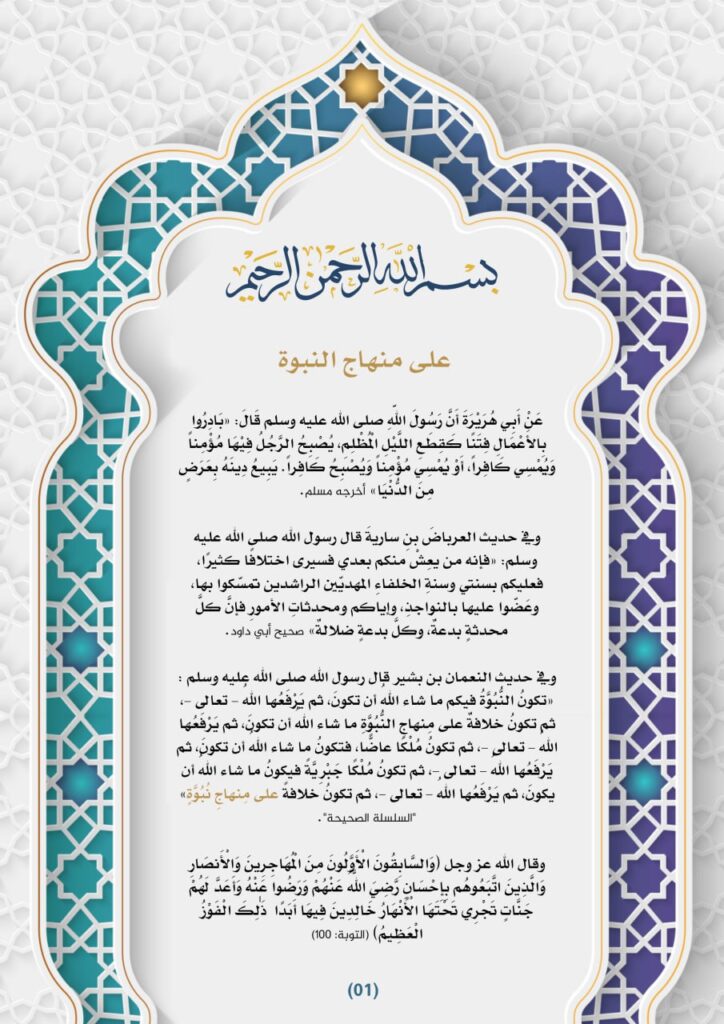 بسم الله الرحمن الرحيم
على منهاج النبوة
عَنْ أَبِي هُرَيْرَةَ أَنَّ رَسُولَ اللّهِ صلى الله عليه وسلم قَالَ: «بَادِرُوا
بِالأَعْمَالِ فِتَنًا كَقِطَعِ اللَّيْلِ الْمُظْلِمِ، يُصْبِحُ الرَّجُلُ فِيْهَا مُؤْمِناً
وَيُمْسِي كَافِراً، أَوْ يُمْسِي مُؤْمِناً وَيُصْبِحُ كَافِراً. يَبِيعُ دِينَهُ بِعَرَضٍ
مِنَ الدُّنْيَا» أخرجه مسلم.
وفي حديث العرباضَ بنِ ساريةَ قال رسول الله صلى الله عليه
وسلم: «فإنه من يعِشْ منكم بعدي فسيرى اختلافًا كثيرًا،
فعليكم بسنتي وسنةِ الخلفاءِ المهديّين الراشدين تمسّكوا بها،
وعَضّوا عليها بالنواجذِ، وإياكم ومحدثاتِ الأمورِ فإنَّ كلَّ
محدثةٍ بدعةٌ، وكلَّ بدعةٍ ضلالةٌ» صحيح أبي داود.
وفي حديث النعمان بن بشير قال رسول الله صلى الله عليه وسلم :
«تكونُ النُّبُوَّةُ فيكم ما شاء الله أن تكونَ، ثم يَرْفَعُها الله – تعالى –،
ثم تكونُ خلافةً على مِنهاجِ النُّبُوَّةِ ما شاء الله أن تكونَ، ثم يَرْفَعُها
الله – تعالى –، ثم تكونُ مُلْكًا عاضًّا، فتكونُ ما شاء الله أن تكونَ، ثم
يَرْفَعُها الله – تعالى –، ثم تكونُ مُلْكًا جَبْرِيَّةً فيكونُ ما شاء الله أن
يكونَ، ثم يَرْفَعُها الله – تعالى –، ثم تكونُ خلافةً على مِنهاجِ نُبُوَّةٍ»
"السلسلة الصحيحة".
وقال الله عز وجل (وَالسَّابِقُونَ الْأَوَّلُونَ مِنَ الْمُهَاجِرِينَ وَالْأَنصَارِ
وَالَّذِينَ اتَّبَعُوهُم بِإِحْسَانٍ رَّضِيَ اللَّهُ عَنْهُمْ وَرَضُوا عَنْهُ وَأَعَدَّ لَهُمْ
جَنَّاتٍ تَجْرِي تَحْتَهَا الْأَنْهَارُ خَالِدِينَ فِيهَا أَبَدًا ذَٰلِكَ الْفَوْزُ
الْعَظِيمُ) (التوبة: 100)
(01)